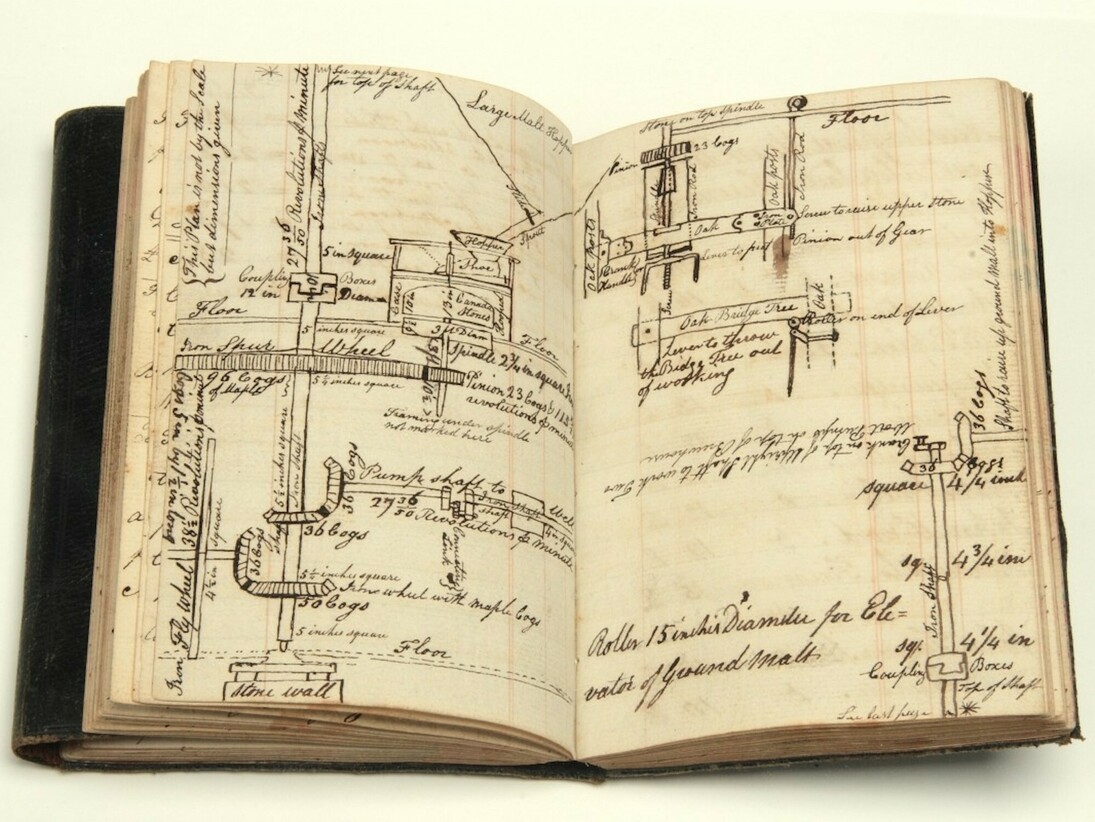 This Plan is not by the Scale
but dimensions given
27 36/50 Revolutions P minute
See next page
for top of Shaft
Large Malt Hopper
Spout
5 in square
Hopper
Shoe
Coupling Boxes
12 in Diam
Case
Canada
Stones
Floor
5 inches square
Diam
Floor
Iron Spur Wheel
Spindle 2 1/4 in square
96 Cogs
of Maple
5 1/2 inches square
Pinion 23 Cogs &
revolutions P minute
Framing under spindle
not marked here
38 1/2 Revolutions P minute
5 1/2 inches square
Iron Shaft
36 Cogs
Pump shaft to
27 36/50 Revolutions P minute
Iron Shaft
Well
4 in square
36 Cogs
Shaft
36 Cogs
square
4 1/2 in
5 1/2 inches square
Iron wheel with maple Cogs
50 Cogs
Iron Fly Wheel
5 inches square
Floor
Stone wall
Stone on top spindle
Floor
Pinion
23 Cogs
Spindle
Iron Rod
Oak posts
Iron Rod
Oak posts
Oak
Iron
Plate
Screw to raise upper stone
Crank
Handle
lever to put
Pinion out of Gear
Screw
Oak Bridge Tree
Oak
Roller on end of Lever
Lever to throw
the Bidge Tree out
of working
Shaft to carry up ground malt into Hopper
36 Cogs
Crank on top of Upright Shaft to work Two
Wort Pumps on top of Brewhouse
36
Cogs
square 4 1/4 inch
sq. 4 3/4 in
Iron Shaft
Roller 15 inches Diameter for Ele=
vator of Ground Malt
sqr. 4 1/4 in
Coupling Boxes
Top of Shaft
See last page